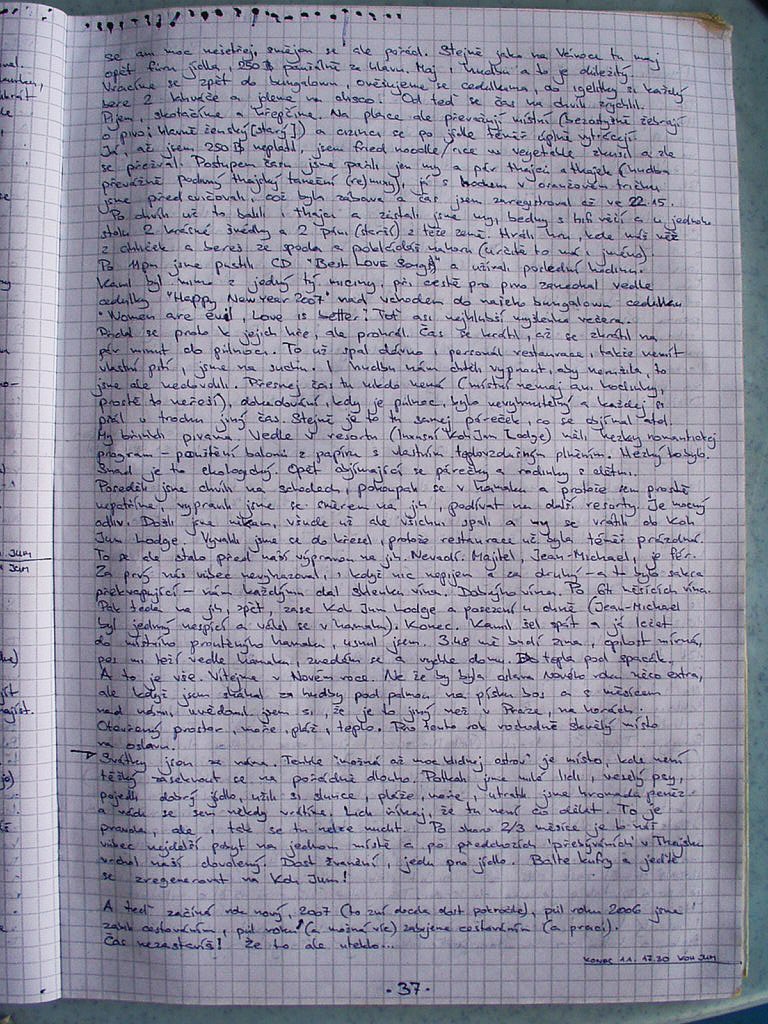 se am moc nesetřej, smějem se ale pořád. Stejně jako na Vánoce tu maj
opět fůru jídla, 250 ฿ paušálně za hlavu. Maj i hudbu a to je důležitý.
Vracíme se zpět do bungalovu, ověšujeme se cedulkama, do igelitky si každý
bere 2 khváče a jdeme na disco. Od teď se čas na chvíli zrychlil.
Pijem, skotačíme a křepčíme. Na place ale převažují místní (bezostyšně žebrají
o pivo i hlavně ženský [starý]) a cizinci se po jídle téměř úplně vytrácejí.
Já, až jsem 250 ฿ neplatil, jsem fried noodle/rice w vegetable zkusil a zle
se přežral. Postupem času jsme pařili jen my a pár thajců a thajek (hudba
převážně podivný thajský taneční (re)mixy), já s bochem v oranžovém tričku
jsme předcvičovali, což byla zábava a čas jsem zaregistroval až ve 22.15.
Po chvíli už to balili i thajci a zůstali jsme my, bedny s hifi věží a u jednoho
stolu 2 krásné švédky a 2 páni (starší) z téže země. Hráli hru, kde máš věž
z dřívek a bereš ze spoda a pokládáš nahoru (určitě to má i jméno)
Po 11pm jsme pustili CD "Best Love Songs" a užívali poslední hodinu.
Kamil byl mimo z jedný tý miciny, při cestě pro pivo zanechal vedle
cedulky "Happy New Year 2007" nad vchodem do našeho bungalovu cedulku
"Women are evil, Love is better: Toť asi nejhlubší myšlenka večera.
Přidal se proto k jejich hře, ale prohrál. Čas se krátil, až se zkrátil na
pár minut do půlnoci. To už spal dávno i personál restaurace, takže nemít
vlastní pití, jsme na suchu. I hudbu nám chtěli vypnout, aby nerušila, to
jsme ale nedovolili. Přesnej čas tu nikdo nemá (místní nemaj ani hodinky,
prostě to neřeší), dohadování, kdy je půlnoc, bylo nevyhnutelný a každej si
přál v trochu jiný čas. Stejně je to tu samej páreček, co se objímal atd.
My přiťukli pivama. Vedle v resortu (luxusní Koh Jum Lodge) měli hezky romantickej
program – pouštění balonů z papíru s vlastním teplovzdušným plněním. Hezký to bylo.
Snad je to ekologický. Opět objímající se párečky a rodinky s dětmi.
Poseděli jsme chvíli na schodech, pohoupali se v hamaku a protože sem prostě
nepatříme, vyprávili jsme se směrem na jih, podívat na další resorty. Je nocný
odliv. Došli jsme nikam, všude už ale všichni spali a my se vrátili do Koh
Jum Lodge. Vyvalili jsme se do křesel, protože restaurace už byla téměř prázdná.
To se ale stalo před naší výpravou na jih. Nevadí. Majitel, Jean-Michael, je fér.
Za prvý nás vůbec nevyhazoval, i když nic nepijem a za druhý – a to bylo sakra
překvapující – nám každýmu dal sklenku vína. Dobrýho vína. Po 6ti měsících vína.
Pak teda na jih, zpět, zase Koh Jum Lodge a posezení u ohně (Jean-Michael
byl jediný nespící a válel se v hamaku). Konec. Kamil šel spát a já ležet
do místního proutěnýho hamaku, usnul jsem. 3.48 mě budí zima, opilost mírná,
pes mi leží vedle hamaku, zvedám se a vyrážím domů. Do tepla pod spacák.
A to je vše. Vítejme v Novém roce. Ne že by byla oslava Nového roku něco extra,
ale když jsem skákal za hudby pod palmou na písku bos a s měsícem
nad námi, uvědomil jsem si, že je to jiný než v Praze, na horách.
Otevřený prostor, moře, pláž, teplo. Pro tento rok rozhodně skvělý místo
na oslavu.
→ Svátky jsou za náma. Tenhle "možná až moc klidnej ostrov" je místo, kde není
těžký zaseknout se na pořádně dlouho. Potkali jsme milé lidi, veselý psy,
pojedli dobrý jídlo, užili si slunce, pláže, moře, utratili jsme hromadu peněz
a rádi se sem někdy vrátíme. Lidi říkaj, že tu není co dělat. To je
pravda, ale i tak se tu nelze nudit. Po skoro 2/3 měsíce je to náš
vůbec nejdelší pobyt na jednom místě a po předchozích "přebýváních" v Thajsku
vrchol naší dovolený. Dost žvanění, jedu pro jídlo. Balte kufry a jeďte
se zregenerovat na Koh Jum!
A teď začíná rok nový, 2007 (to zní docela dost pokročile), půl roku 2006 jsme
zabili cestováním, půl roku (a možná víc) zabijeme cestováním (a prací).
Čas nezastavíš! Že to ale uteklo...
KONEC 1.1. 17.30 KOH JUM
- 37 -
JUM
JUM